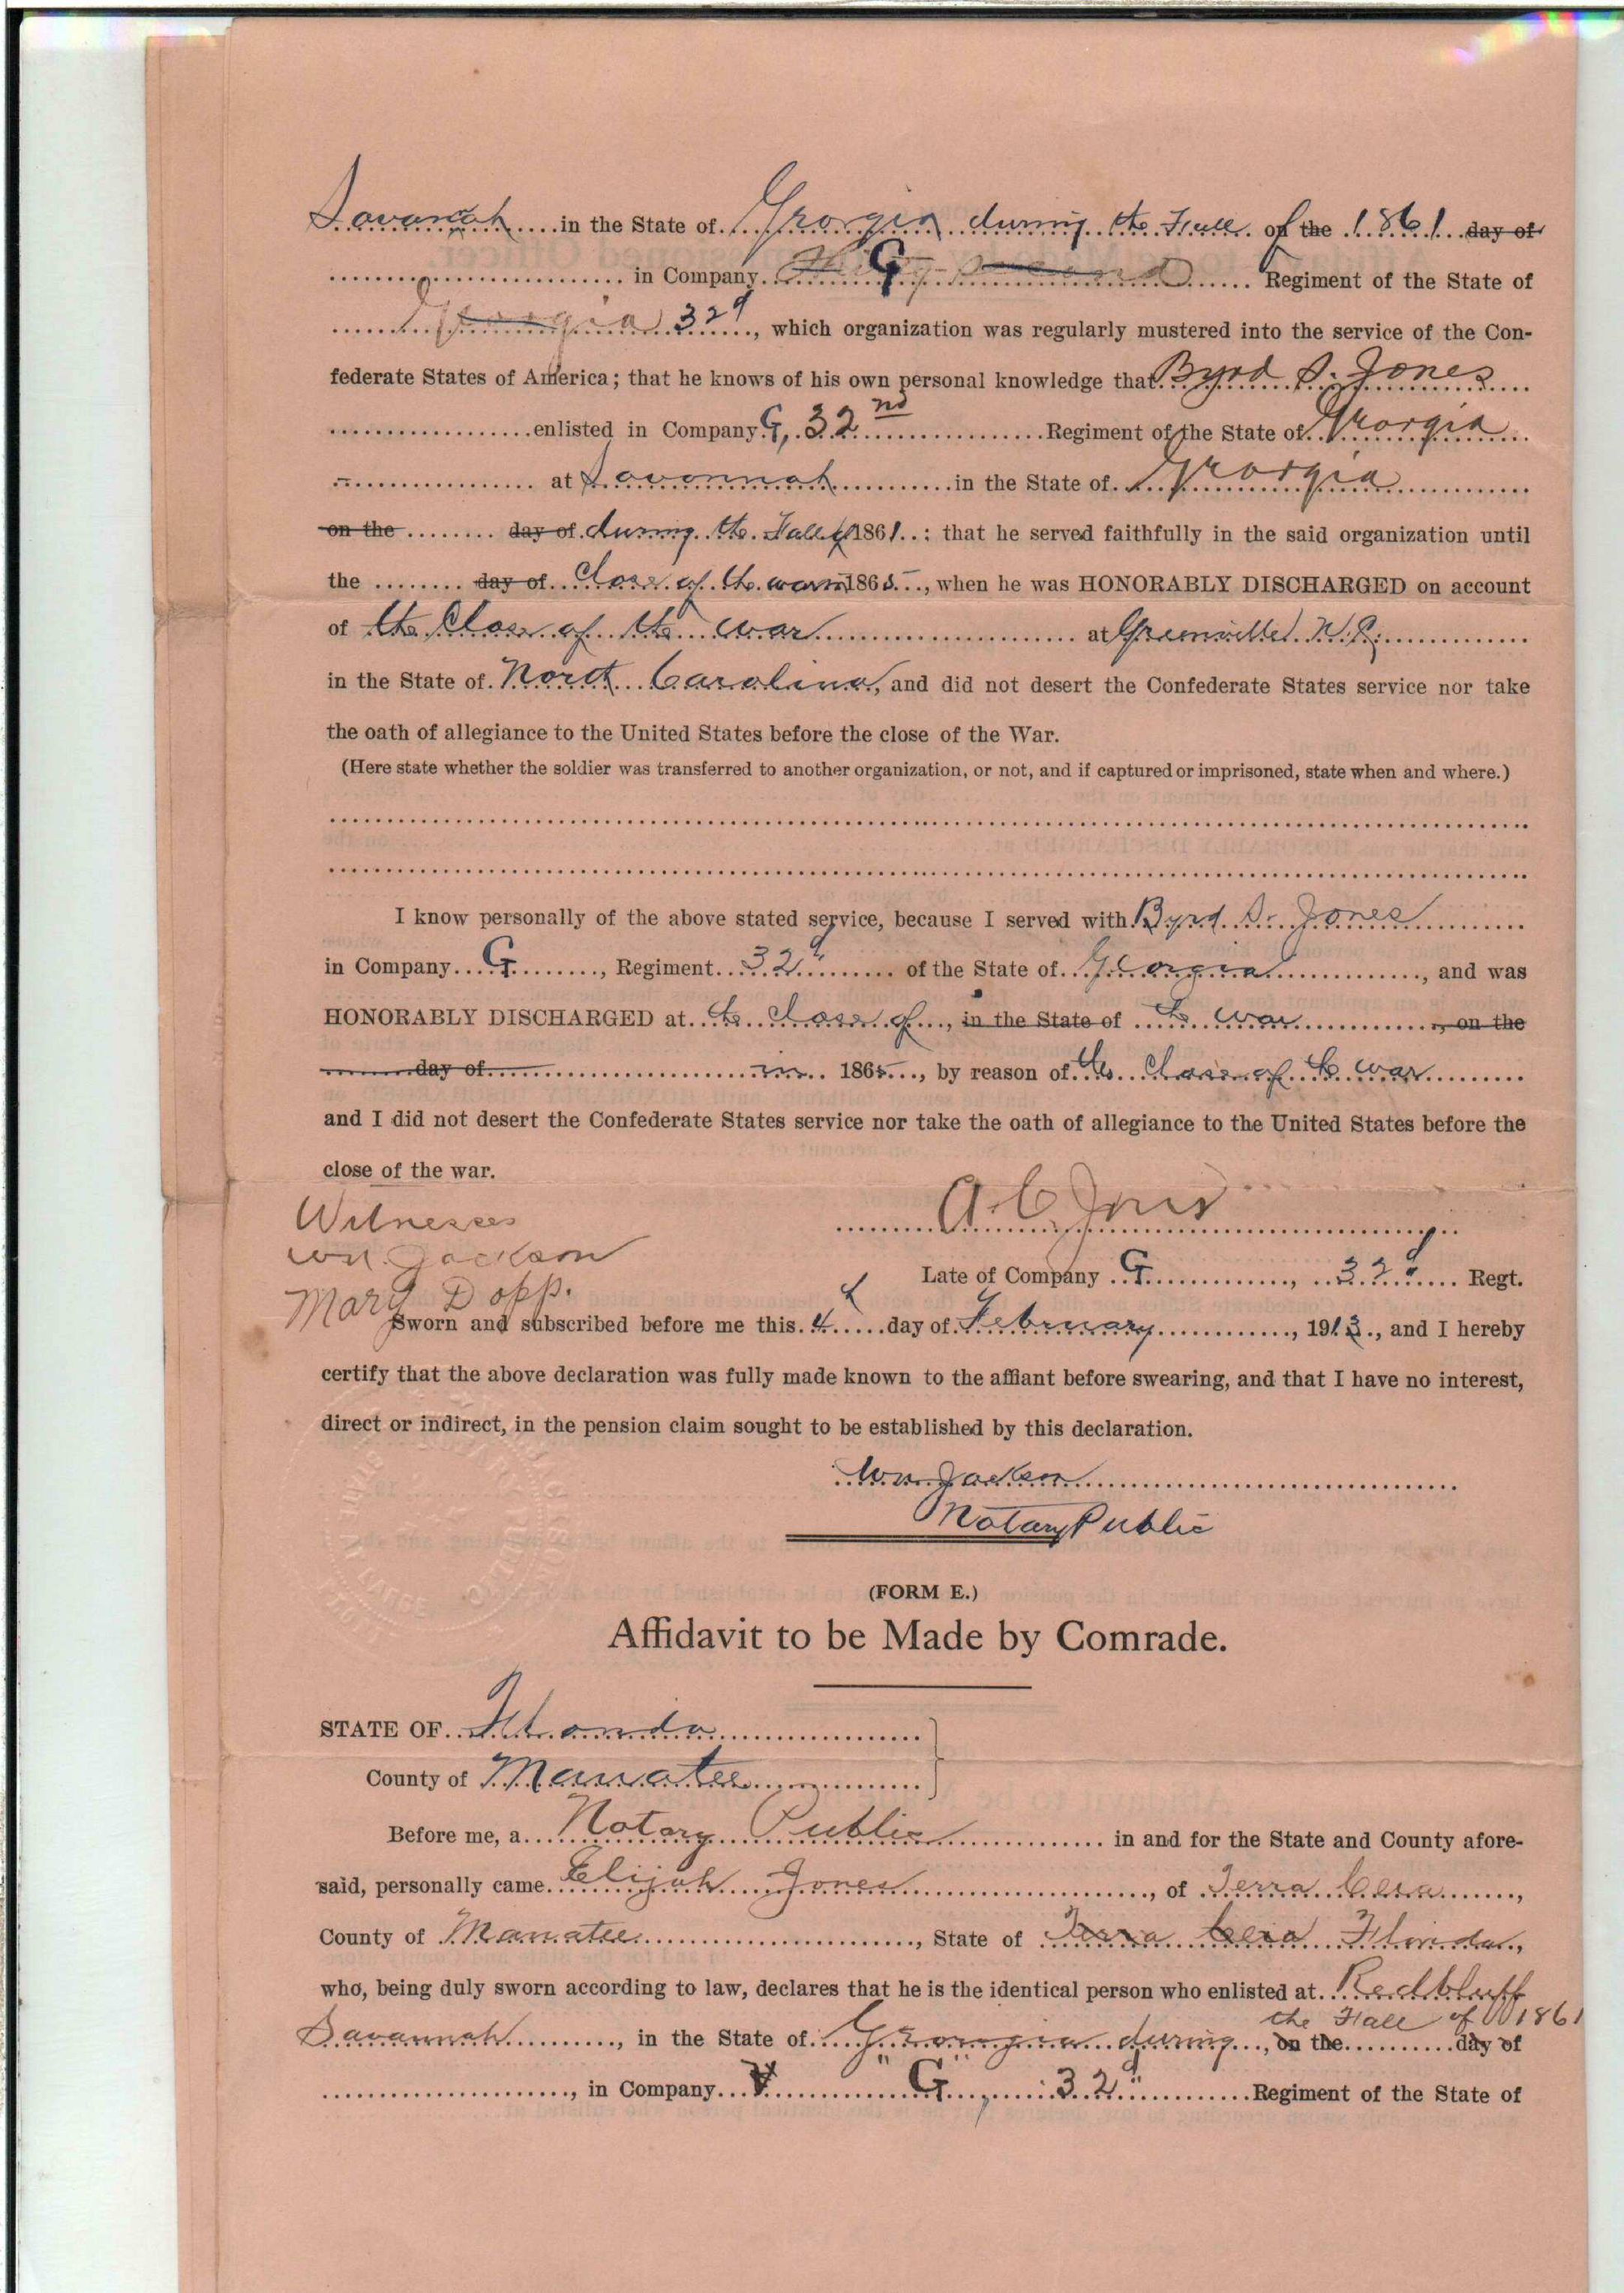 Savanah in the State of Georgia during the Fall of the 1861 day of
in Company Thirty Second G Regiment of the State of
Georgia 32d, which organization was regularly mustered into the service of the Con-
federate States of America; that he knows of his own personal knowledge that Byrd S. Jones
enlisted in Company G, 32nd Regiment of the State of Georgia
at Savannah in the State of Georgia
on the day of during the Fall of 1861.: that he served faithfully in the said organization until
the day of Close of the war in 1865, when he was HONORABLY DISCHARGED on account
of the Close of the war at Greenville N.C.
in the State of North Carolina, and did not desert the Confederate States service nor take
the oath of allegiance to the United States before the close of the War.
(Here state whether the soldier was transferred to another organization, or not, and if captured or imprisoned, state when and where.)
I know personally of the above stated service, because I served with Byrd S. Jones
in Company G, Regiment 32d of the State of Georgia, and was
HONORABLY DISCHARGED at the close of, in the State of the war, on the
day of in 1865, by reason of the Close of the war
and I did not desert the Confederate States service nor take the oath of allegiance to the United States before the
close of the war.
Witnesses
Wm. Jackson
Mary Dopp.
A. C. Jones
Late of Company G, 32d Regt.
Sworn and subscribed before me this 4th day of February, 1913, and I hereby
certify that the above declaration was fully made known to the affiant before swearing, and that I have no interest,
direct or indirect, in the pension claim sought to be established by this declaration.
Wm Jackson
Notary Public
(FORM E.)
Affidavit to be Made by Comrade.
STATE OF Florida
County of Manatee
Before me, a Notary Public in and for the State and County afore-
said, personally came Elijah Jones, of Terra Ceia,
County of Manatee, State of Terra Ceia Florida,
who, being duly sworn according to law, declares that he is the identical person who enlisted at Redbluff
Savannah, in the State of Georgia during the Fall of 1861, on the day of
, in Company "G", 32d Regiment of the State of